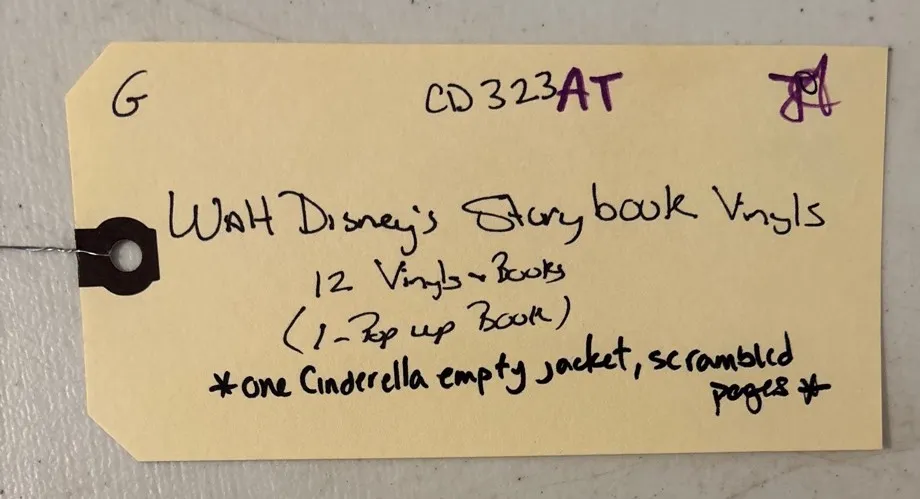 G CD323AT
Walt Disney's Storybook Vinyls
12 Vinyls + Books
(1-Pop up Book)
*one Cinderella empty jacket, scrambled
pages*